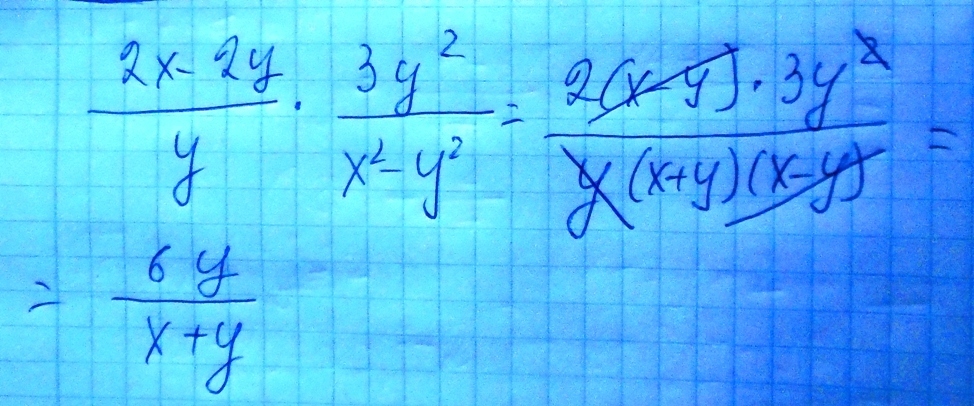 (2x-2y)/y · 3y²/(x²-y²) = (2(x-y)·3y²)/(y(x+y)(x-y)) =
= 6y/(x+y)